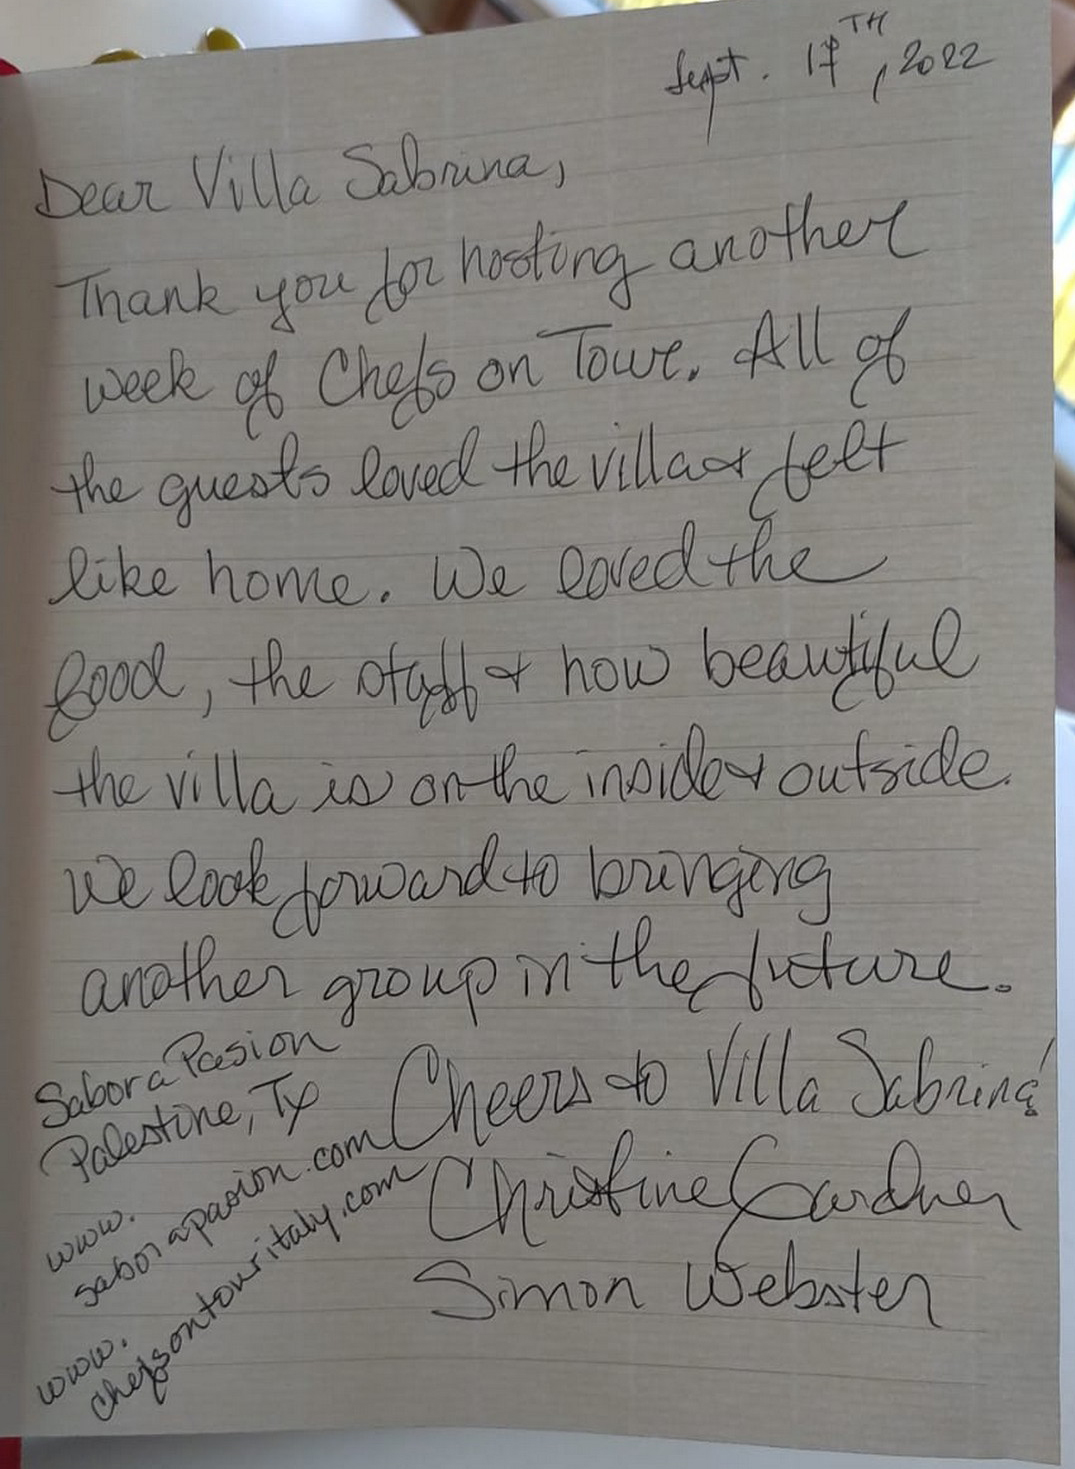 Sept. 17TH, 2022
Dear Villa Sabrina,
Thank you for hosting another
week of Chefs on Tour. All of
the guests loved the villa & felt
like home. We loved the
food, the staff & how beautiful
the villa is on the inside & outside.
We look forward to bringing
another group in the future.
Cheers to Villa Sabrina!
Christine Gardner
Simon Webster
Sabor a Pasion
Palestine, Tx
www.
saborapasion.com
www.
chefsontouritaly.com